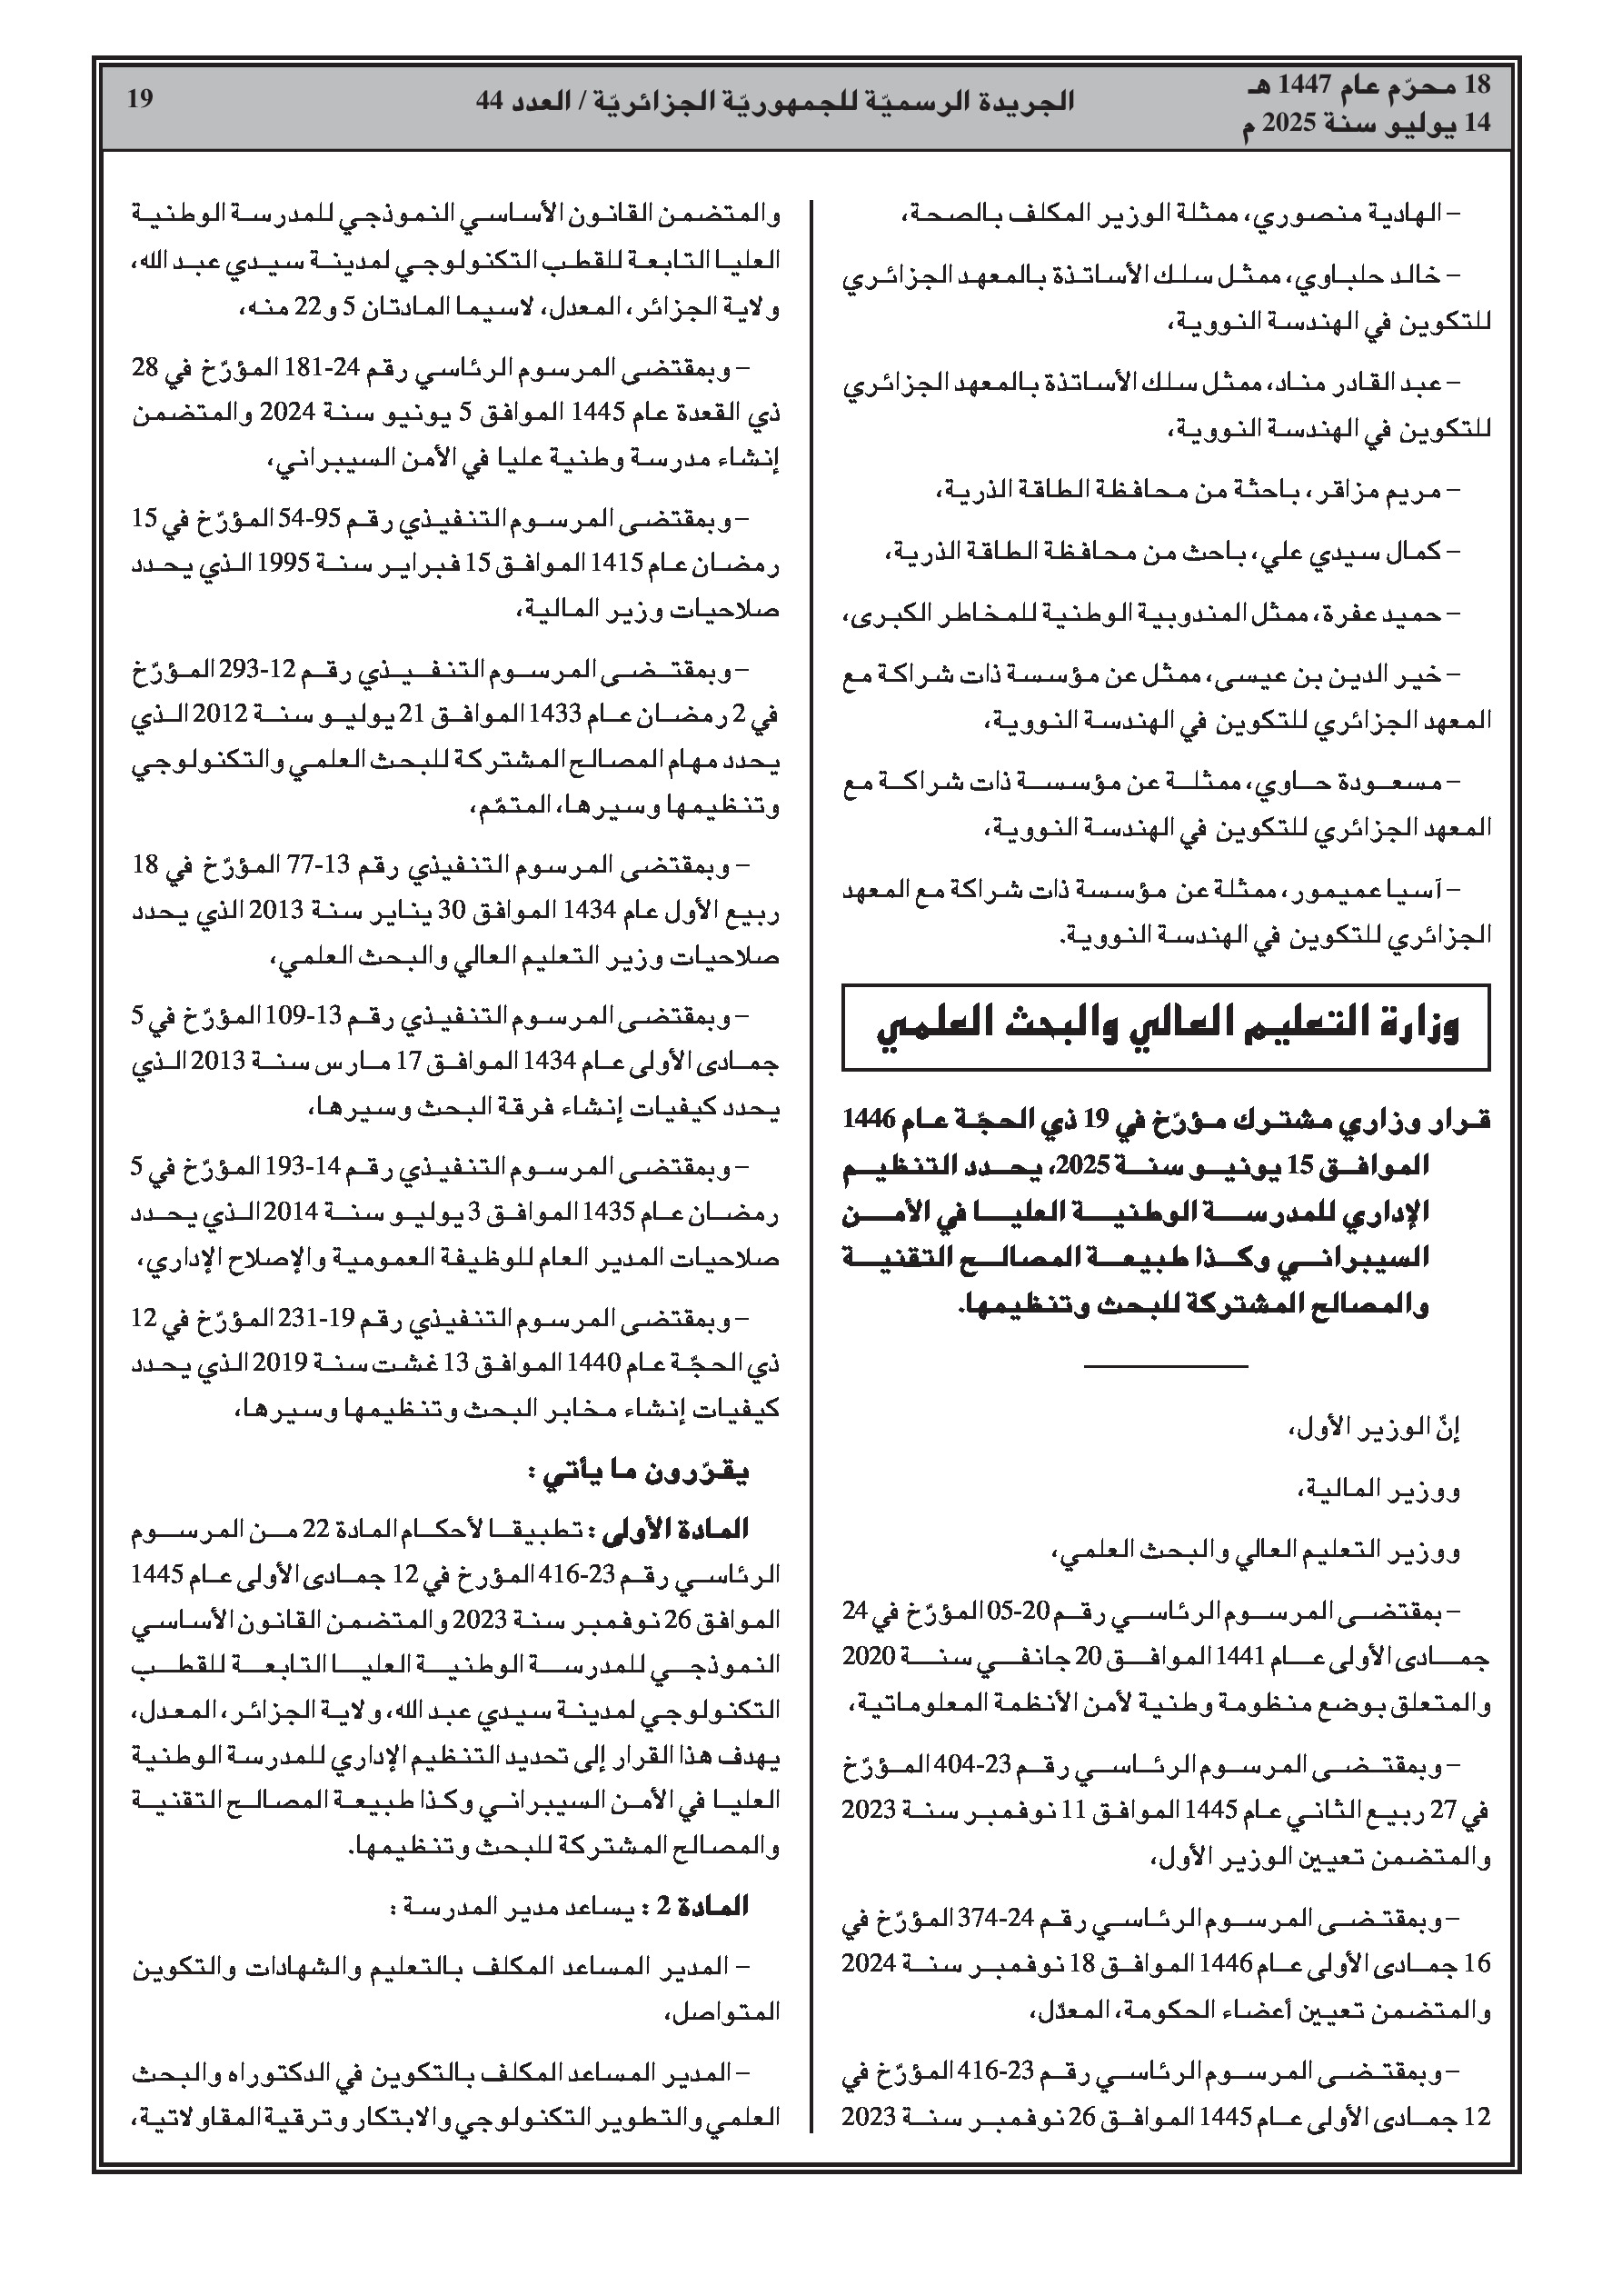 18 محرّم عام 1447 هـ
14 يوليو سنة 2025 م
الجريدة الرسميّة للجمهوريّة الجزائريّة / العدد 44
19
– الهادية منصوري، ممثلة الوزير المكلف بالصحة،
– خالد حلباوي، ممثل سلك الأساتذة بالمعهد الجزائري
للتكوين في الهندسة النووية،
– عبد القادر مناد، ممثل سلك الأساتذة بالمعهد الجزائري
للتكوين في الهندسة النووية،
– مريم مزاقر، باحثة من محافظة الطاقة الذرية،
– كمال سيدي علي، باحث من محافظة الطاقة الذرية،
– حميد عفرة، ممثل المندوبية الوطنية للمخاطر الكبرى،
– خير الدين بن عيسى، ممثل عن مؤسسة ذات شراكة مع
المعهد الجزائري للتكوين في الهندسة النووية،
– مسعودة حاوي، ممثلة عن مؤسسة ذات شراكة مع
المعهد الجزائري للتكوين في الهندسة النووية،
– آسيا عميمور، ممثلة عن مؤسسة ذات شراكة مع المعهد
الجزائري للتكوين في الهندسة النووية.
وزارة التعليم العالي والبحث العلمي
قرار وزاري مشترك مؤرّخ في 19 ذي الحجّة عام 1446
الموافق 15 يونيو سنة 2025، يحدد التنظيم
الإداري للمدرسة الوطنية العليا في الأمن
السيبراني وكذا طبيعة المصالح التقنية
والمصالح المشتركة للبحث وتنظيمها.
إنّ الوزير الأول،
ووزير المالية،
ووزير التعليم العالي والبحث العلمي،
– بمقتضى المرسوم الرئاسي رقم 20-05 المؤرّخ في 24
جمادى الأولى عام 1441 الموافق 20 جانفي سنة 2020
والمتعلق بوضع منظومة وطنية لأمن الأنظمة المعلوماتية،
– وبمقتضى المرسوم الرئاسي رقم 23-404 المؤرّخ
في 27 ربيع الثاني عام 1445 الموافق 11 نوفمبر سنة 2023
والمتضمن تعيين الوزير الأول،
– وبمقتضى المرسوم الرئاسي رقم 24-374 المؤرّخ في
16 جمادى الأولى عام 1446 الموافق 18 نوفمبر سنة 2024
والمتضمن تعيين أعضاء الحكومة، المعدّل،
– وبمقتضى المرسوم الرئاسي رقم 23-416 المؤرّخ في
12 جمادى الأولى عام 1445 الموافق 26 نوفمبر سنة 2023
والمتضمن القانون الأساسي النموذجي للمدرسة الوطنية
العليا التابعة للقطب التكنولوجي لمدينة سيدي عبد الله،
ولاية الجزائر، المعدل، لاسيما المادتان 5 و22 منه،
– وبمقتضى المرسوم الرئاسي رقم 24-181 المؤرّخ في 28
ذي القعدة عام 1445 الموافق 5 يونيو سنة 2024 والمتضمن
إنشاء مدرسة وطنية عليا في الأمن السيبراني،
– وبمقتضى المرسوم التنفيذي رقم 95-54 المؤرّخ في 15
رمضان عام 1415 الموافق 15 فبراير سنة 1995 الذي يحدد
صلاحيات وزير المالية،
– وبمقتضى المرسوم التنفيذي رقم 12-293 المؤرّخ
في 2 رمضان عام 1433 الموافق 21 يوليو سنة 2012 الذي
يحدد مهام المصالح المشتركة للبحث العلمي والتكنولوجي
وتنظيمها وسيرها، المتمّم،
– وبمقتضى المرسوم التنفيذي رقم 13-77 المؤرّخ في 18
ربيع الأول عام 1434 الموافق 30 يناير سنة 2013 الذي يحدد
صلاحيات وزير التعليم العالي والبحث العلمي،
– وبمقتضى المرسوم التنفيذي رقم 13-109 المؤرّخ في 5
جمادى الأولى عام 1434 الموافق 17 مارس سنة 2013 الذي
يحدد كيفيات إنشاء فرقة البحث وسيرها،
– وبمقتضى المرسوم التنفيذي رقم 14-193 المؤرّخ في 5
رمضان عام 1435 الموافق 3 يوليو سنة 2014 الذي يحدد
صلاحيات المدير العام للوظيفة العمومية والإصلاح الإداري،
– وبمقتضى المرسوم التنفيذي رقم 19-231 المؤرّخ في 12
ذي الحجّة عام 1440 الموافق 13 غشت سنة 2019 الذي يحدد
كيفيات إنشاء مخابر البحث وتنظيمها وسيرها،
يقرّرون ما يأتي :
المادة الأولى : تطبيقا لأحكام المادة 22 من المرسوم
الرئاسي رقم 23-416 المؤرخ في 12 جمادى الأولى عام 1445
الموافق 26 نوفمبر سنة 2023 والمتضمن القانون الأساسي
النموذجي للمدرسة الوطنية العليا التابعة للقطب
التكنولوجي لمدينة سيدي عبد الله، ولاية الجزائر، المعدل،
يهدف هذا القرار إلى تحديد التنظيم الإداري للمدرسة الوطنية
العليا في الأمن السيبراني وكذا طبيعة المصالح التقنية
والمصالح المشتركة للبحث وتنظيمها.
المادة 2 : يساعد مدير المدرسة :
– المدير المساعد المكلف بالتعليم والشهادات والتكوين
المتواصل،
– المدير المساعد المكلف بالتكوين في الدكتوراه والبحث
العلمي والتطوير التكنولوجي والابتكار وترقية المقاولاتية،